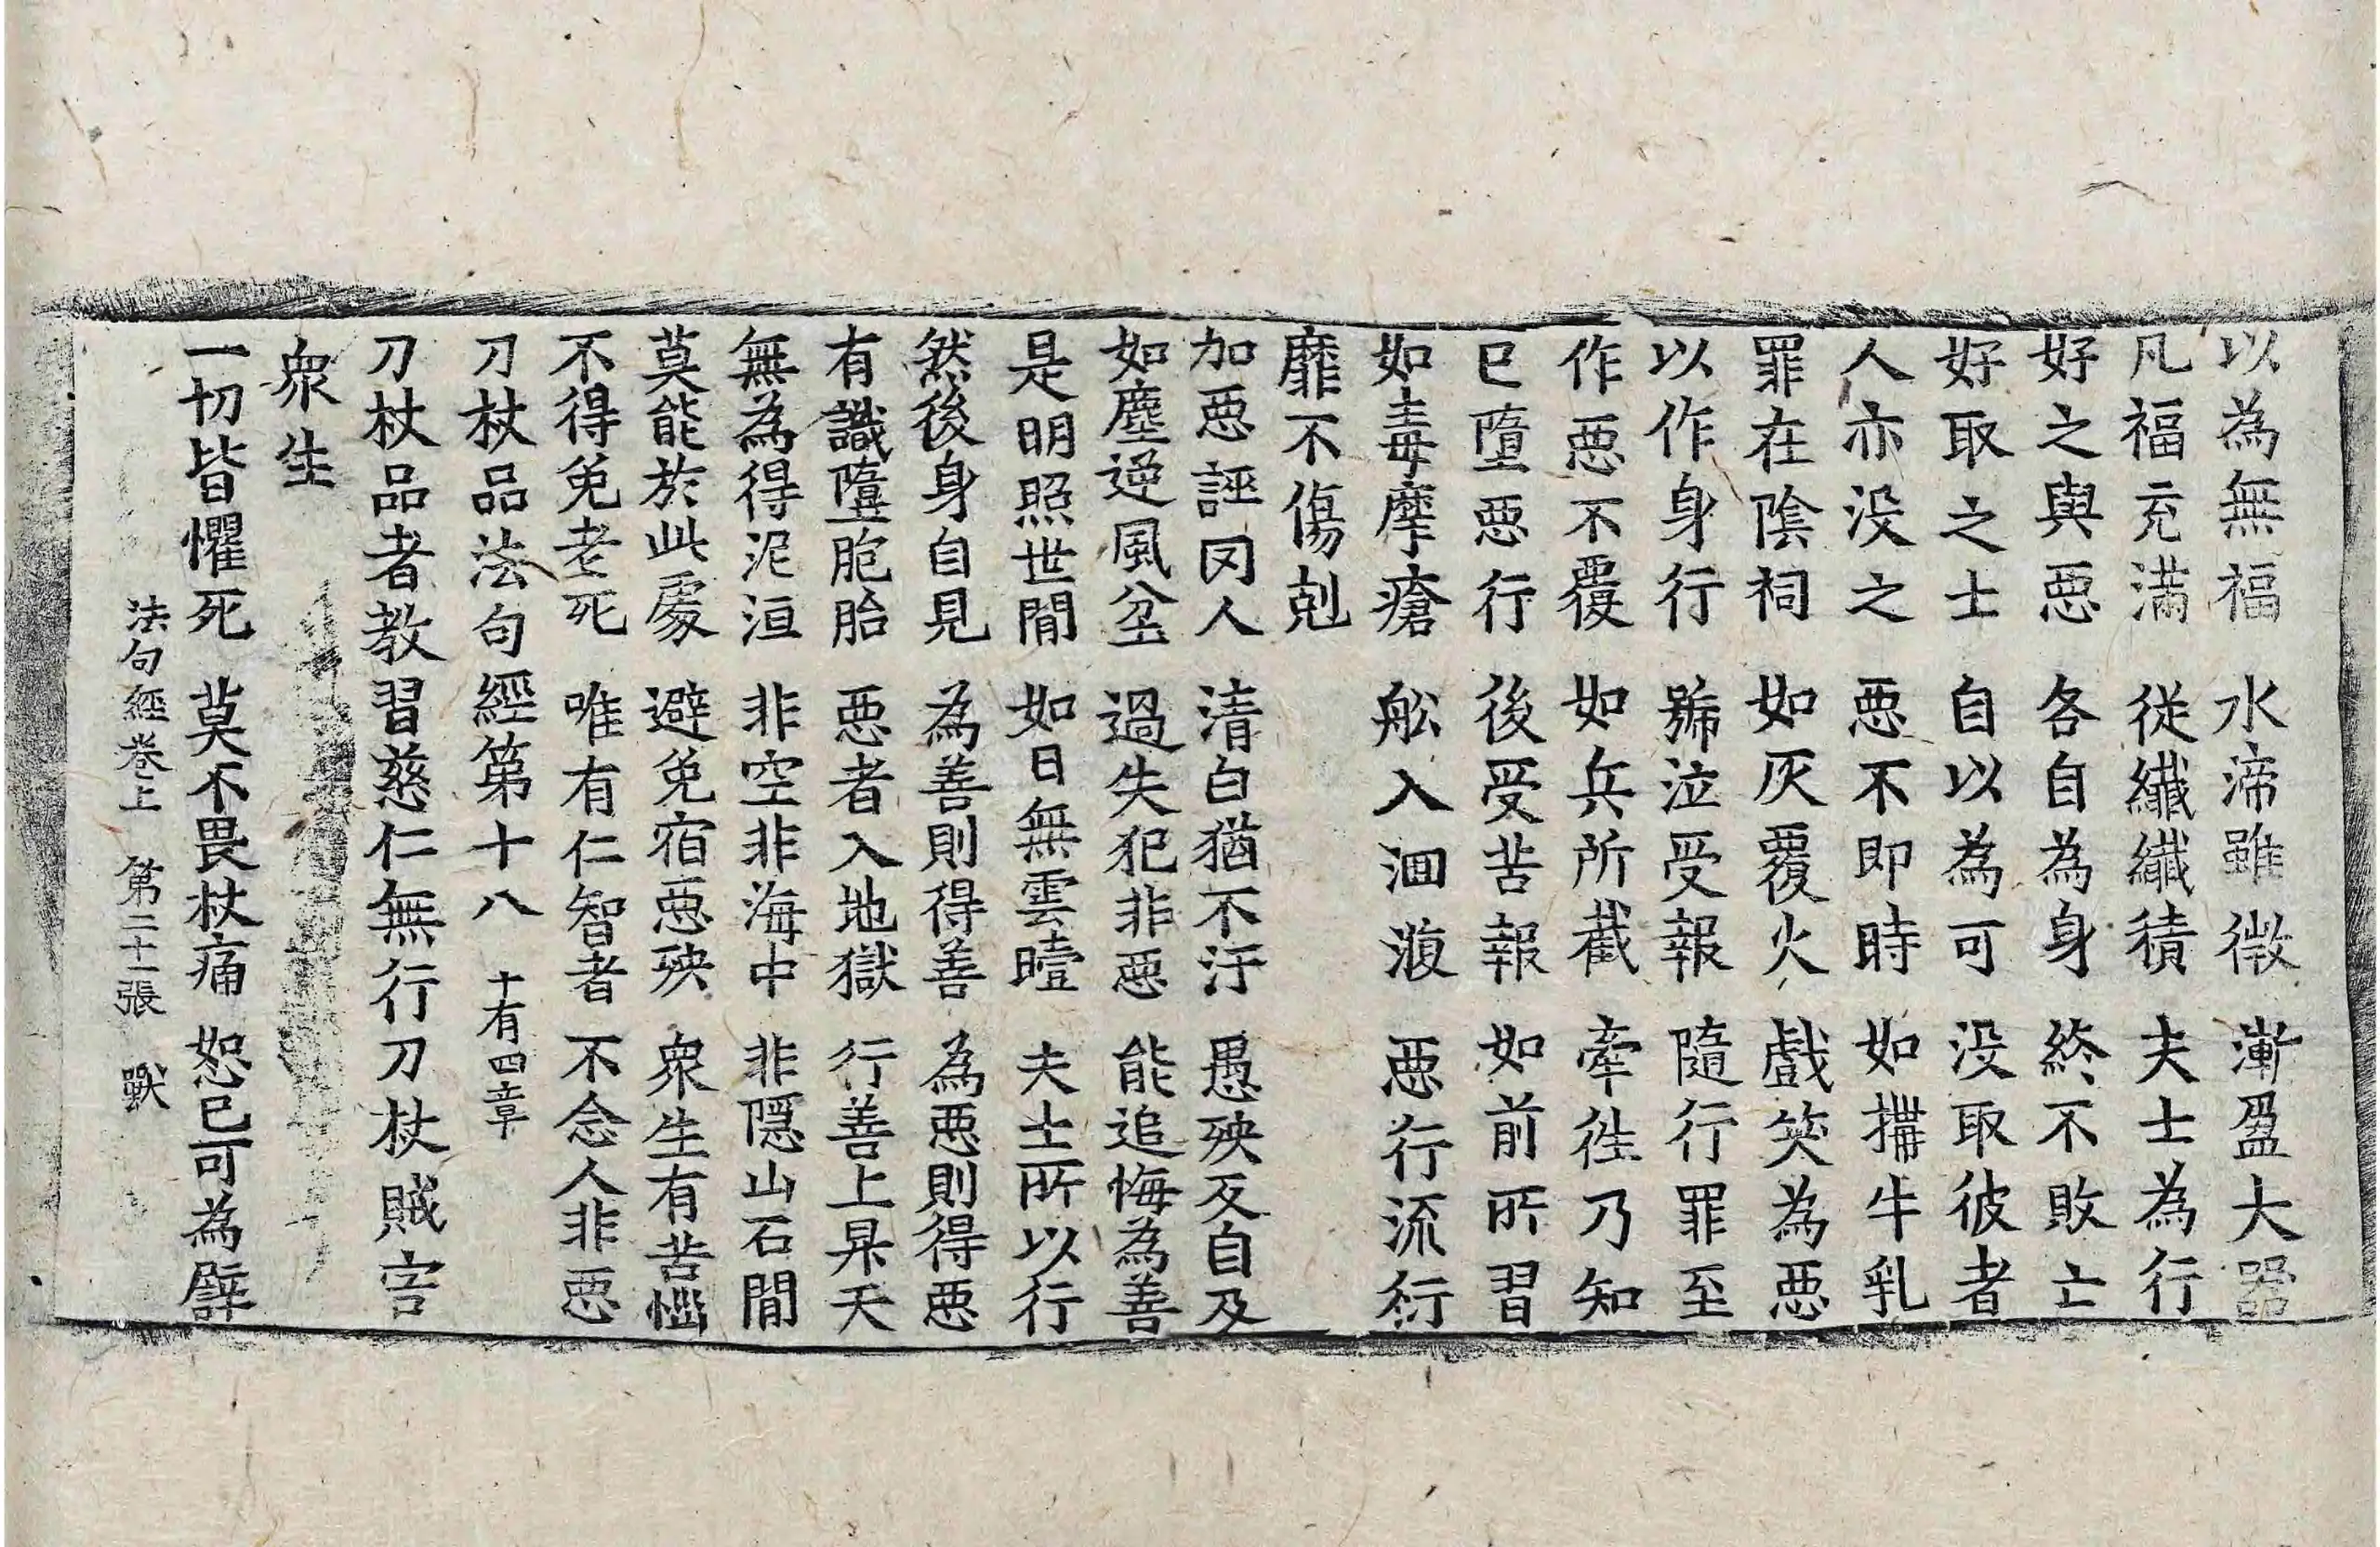 以為無福　水渧雖微　漸盈大器
凡福充滿　從纖纖積　夫士為行
好之與惡　各自為身　終不敗亡
好取之士　自以為可　没取彼者
人亦没之　惡不即時　如㨢牛乳
罪在陰祠　如灰覆火　戲笑為惡
以作身行　號泣受報　隨行罪至
作惡不覆　如兵所截　牽往乃知
已墮惡行　後受苦報　如前所習
如毒摩瘡　舩入洄澓　惡行流衍
靡不傷剋
加惡誣罔人　清白猶不汙　愚殃反自及
如塵逆風坌　過失犯非惡　能追悔為善
是明照世間　如日無雲曀　夫士所以行
然後身自見　為善則得善　為惡則得惡
有識墮胞胎　惡者入地獄　行善上昇天
無為得泥洹　非空非海中　非隱山石間
莫能於此處　避免宿惡殃　衆生有苦惱
不得免老死　唯有仁智者　不念人非惡
刀杖品法句經第十八　十有四章
刀杖品者教習慈仁無行刀杖賊害
衆生
一切皆懼死　莫不畏杖痛　恕已可為譬
法句經卷上　第二十一張　獸